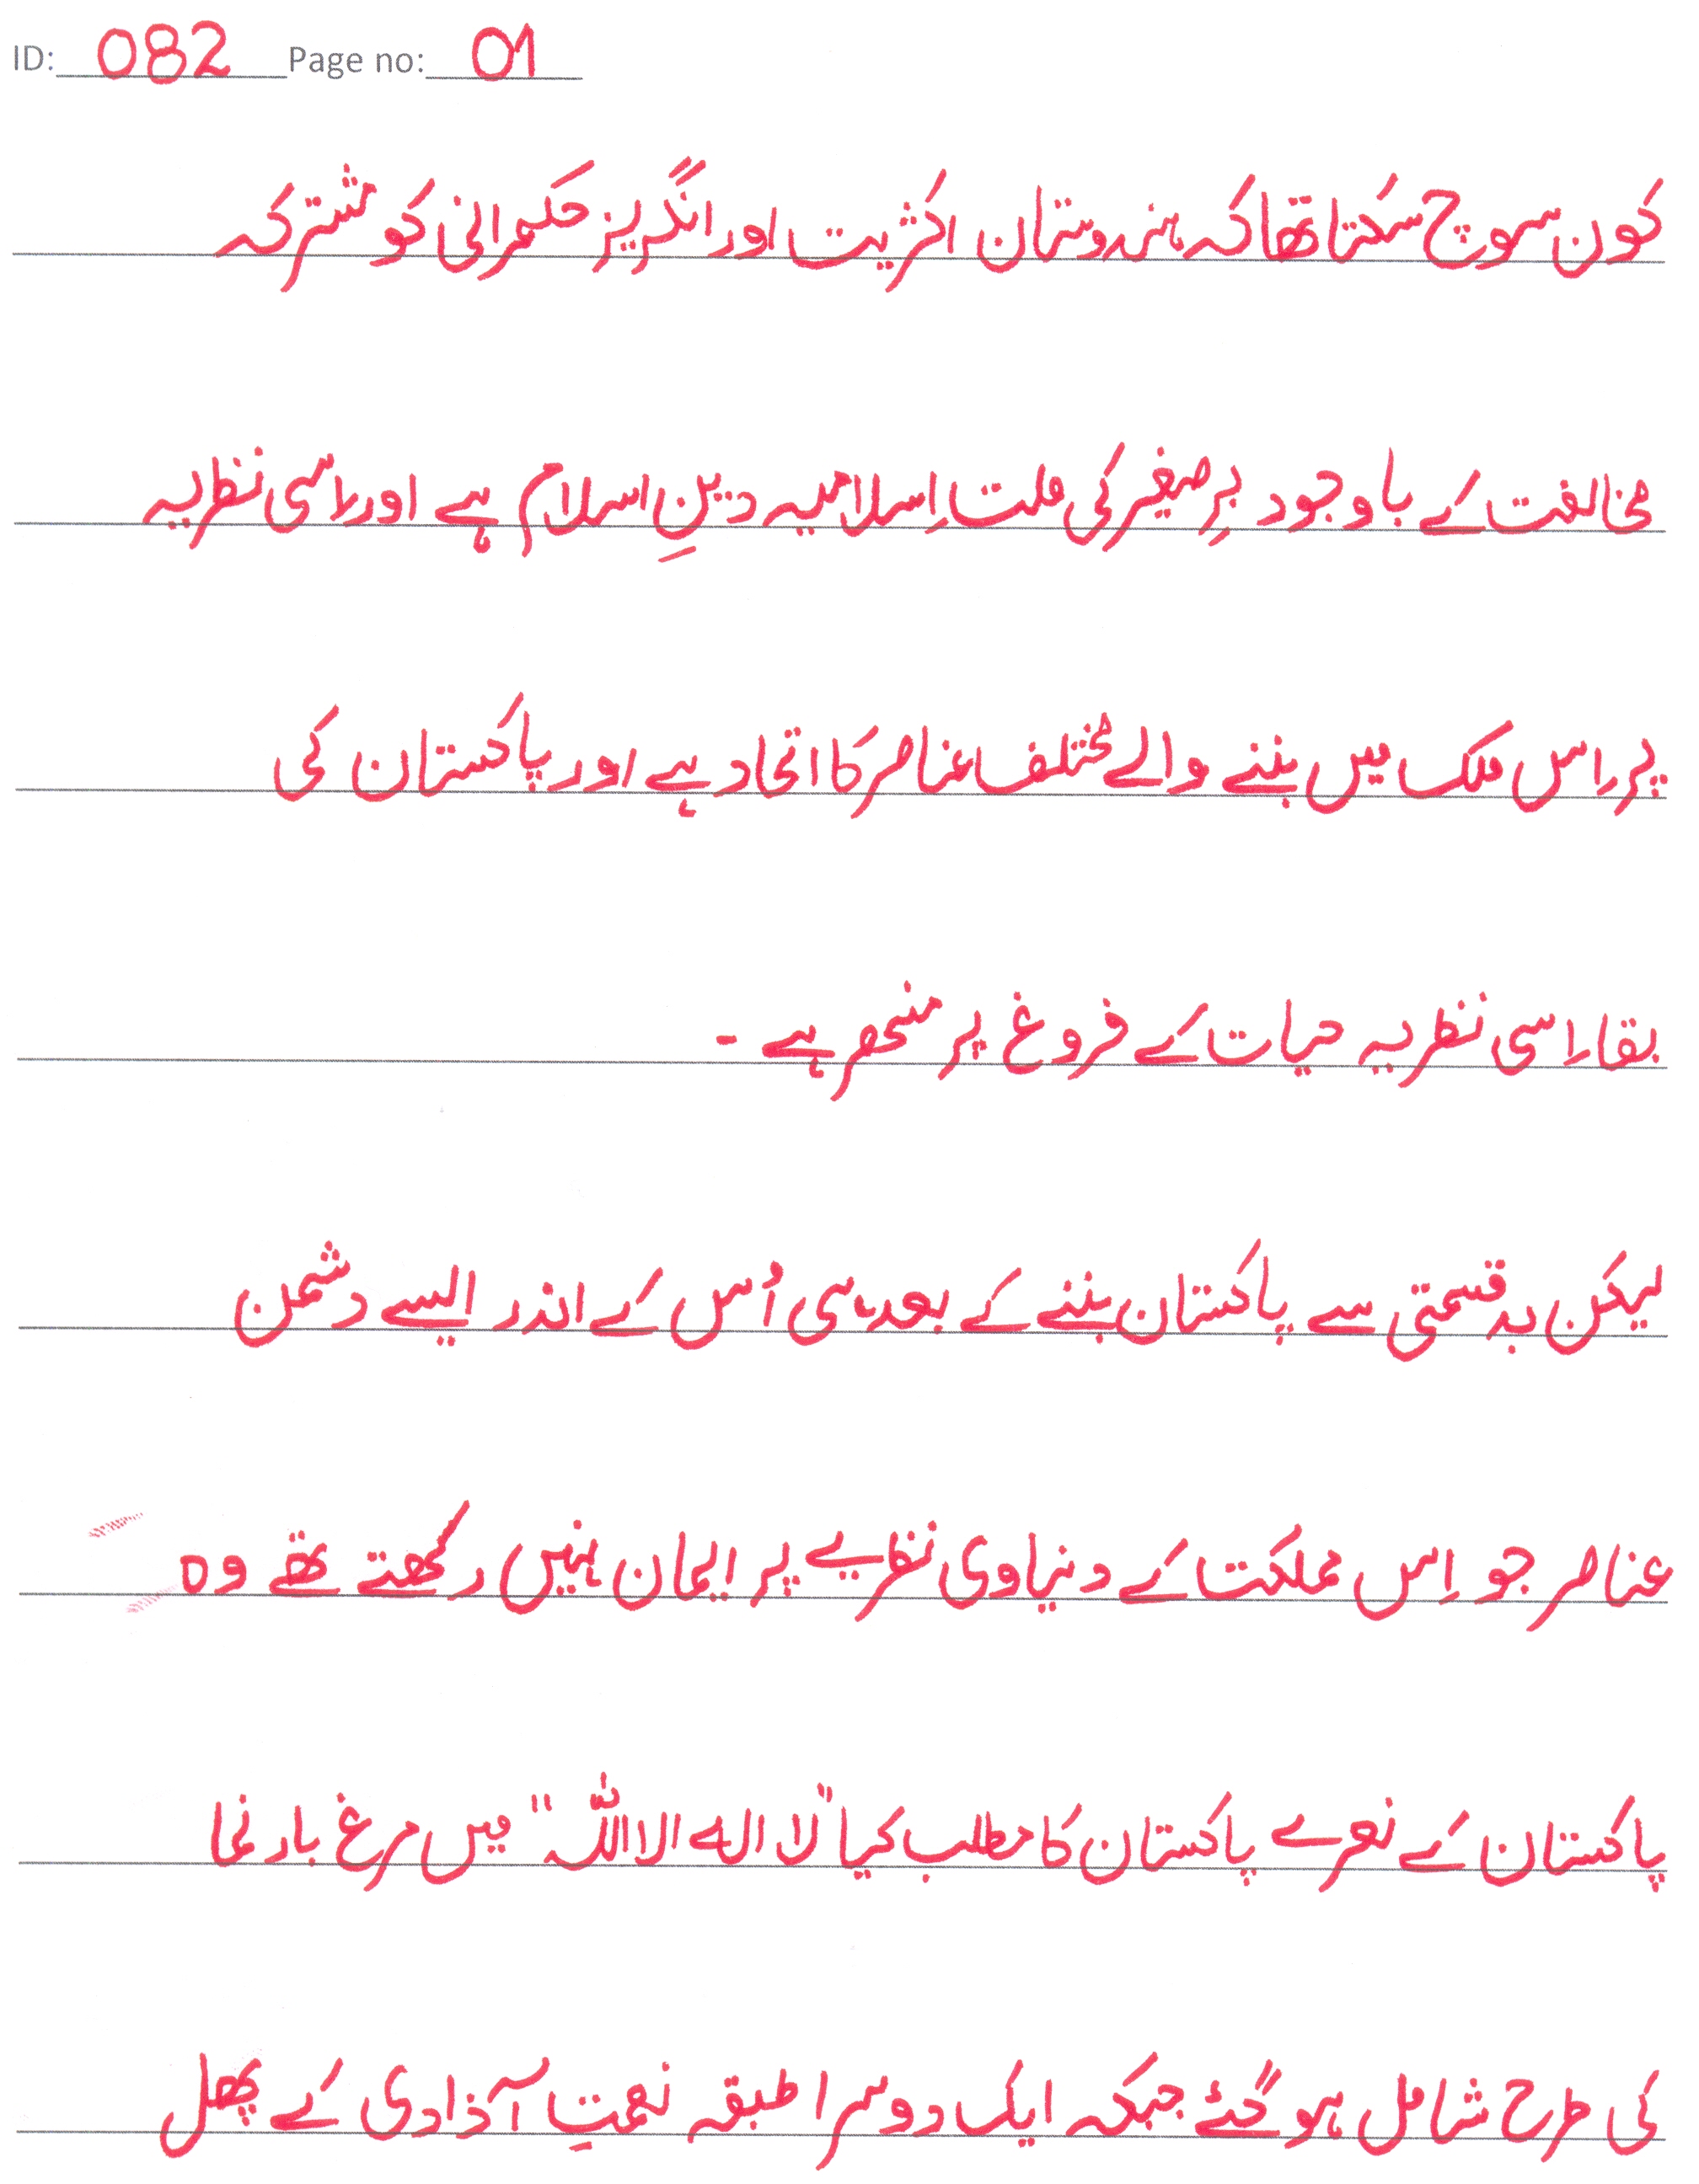 ID: 082 Page no: 01
کون سوچ سکتا تھا کہ ہندوستان اکثریت اور انگریز حکمرانی کو مشترکہ
مخالفت کے باوجود برِصغیر کی ملت اِسلامیہ دینِ اسلام ہے اور اسی نظریہ
پر اِس ملک میں بننے والے مختلف عناصر کا اتحاد ہے اور پاکستان کی
بقا اِسی نظریہ حیات کے فروغ پر منحصر ہے -
لیکن بدقسمتی سے پاکستان بننے کے بعد ہی اُس کے اندر ایسے دشمن
عناصر جو اِس مملکت کے دنیاوی نظریے پر ایمان نہیں رکھتے تھے وہ
پاکستان کے نعرے پاکستان کا مطلب کیا "لا الہ الا اللّٰہ" میں مرغ باد نما
کی طرح شامل ہو گئے جبکہ ایک دوسرا طبقہ نعمتِ آذادی کے پھل